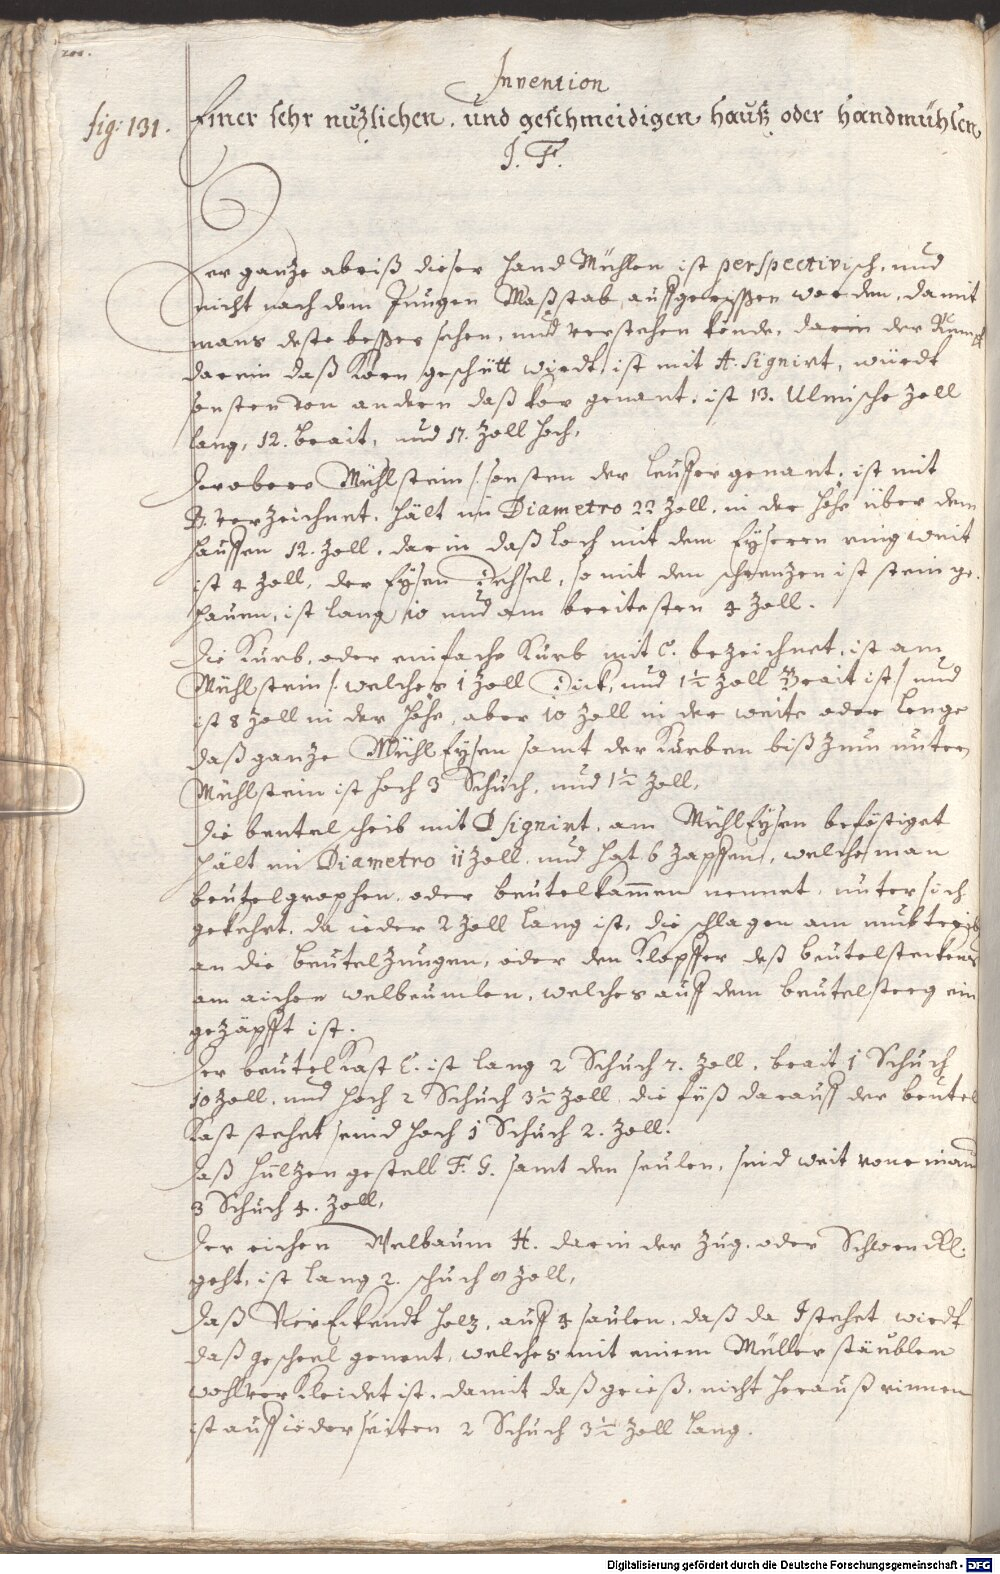 Invention
fig: 131. Einer sehr nuzlichen, und geschmeidigen hauß oder handmühlen
J. F.
Der ganze abriß dieser Hand Mühlen ist perspectivisch, und
nicht nach dem Jungen Maßstab auffgerissen worden, damit
mans desto besser sehen, und verstehen könde, darin der Rumpf
darein daß Korn geschütt wirdt, ist mit A. signirt, würdt
sonsten von andern daß kor genant, ist 13. Ulmische Zoll
lang, 12. brait, und 17. Zoll hoch,
Der ober Mühlstein /: sonsten der leuffer genant, ist mit
B. verzeichnet, hält in Diametro 22 Zoll, in der Höhe über dem
hauffen 12. Zoll, darin daß loch mit dem Eyseren ring weit
ist 4 Zoll, der Eysen Deichsel, so mit den schrenzen ist stein ge-
hauen, ist lang 10 und am breitesten 4 Zoll.
Die Kurb, oder einfache Kurb mit C. bezeichnet, ist am
Mühlstein /: welches 1 Zoll Dick, und 1½ Zoll Brait ist / und
ist 8 Zoll in der Höhe, aber 10 Zoll in der weite oder lenge
daß ganze Mühl Eysen samt der Kurben biß zum untern
Mühlstein ist hoch 3 Schuch, und 1½ Zoll,
Die beutel scheib mit D signirt, am Mühleysen beföstiget
hält in Diametro 11 Zoll, und hat 6 Zapffen, welche man
beutelgrophen, oder beutelkammen nennet, untersich
gekehrt, da ieder 2 Zoll lang ist, die schlagen am
an die beutelzungen, oder den Klopffer deß beutelsteckens
am aichen welbeumlen, welches auff dem beutelsteeg ein
gezäpfft ist.
Der beutel Kast E. ist lang 2 Schuch 7. Zoll, brait 1 Schuch
10 Zoll, und hoch 2 Schuch 3½ Zoll, die füß darauff der beutel
Kast stehet seind hoch 1 Schuch 2. Zoll.
Daß Hülzen gestell F. G. samt den seulen, sind weit von einand
3 Schuch 4. Zoll,
Der eichen Welbaum H. darin der Zug, oder
geht, ist lang 2. schuch 8 Zoll,
Daß Vier Eckendt holz, auff 4 saulen, daß da J stehet, wirdt
daß gescheel genent, welches mit einem Müller stäublen
wohl verkleidet ist, damit daß grieß, nicht herauß rinnen
ist auff ieder seiten 2 Schuch 3½ Zoll lang.
Digitalisierung gefördert durch die Deutsche Forschungsgemeinschaft - DFG